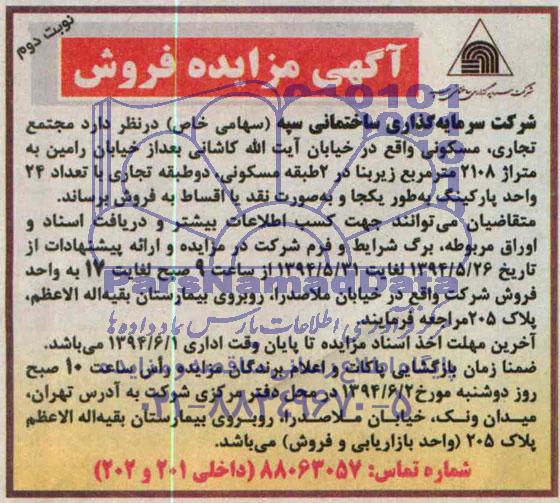 نوبت دوم
آگهی مزایده فروش
شرکت سرمایه‌گذاری ساختمانی سپه (سهامی خاص) درنظر دارد مجتمع
تجاری، مسکونی واقع در خیابان آیت الله کاشانی بعداز خیابان رامین به
متراژ ۲۱۰۸ مترمربع زیربنا در ۲طبقه مسکونی، دوطبقه تجاری با تعداد ۲۴
واحد پارکینگ به‌طور یکجا و به‌صورت نقد یا اقساط به فروش برساند.
متقاضیان می‌توانند جهت کسب اطلاعات بیشتر و دریافت اسناد و
اوراق مربوطه، برگ شرایط و فرم شرکت در مزایده و ارائه پیشنهادات از
تاریخ ۱۳۹۴/۵/۲۶ لغایت ۱۳۹۴/۵/۳۱ از ساعت ۹ صبح لغایت ۱۷ به واحد
فروش شرکت واقع در خیابان ملاصدرا، روبروی بیمارستان بقیه‌اله الاعظم،
پلاک ۲۰۵مراجعه فرمایند.
آخرین مهلت اخذ اسناد مزایده تا پایان وقت اداری ۱۳۹۴/۶/۱ می‌باشد.
ضمنا زمان بازگشایی پاکات و اعلام برندگان مزایده رأس ساعت ۱۰ صبح
روز دوشنبه مورخ۱۳۹۴/۶/۲ در محل دفتر مرکزی شرکت به آدرس تهران،
میدان ونک، خیابان ملاصدرا، روبروی بیمارستان بقیه‌اله الاعظم
پلاک ۲۰۵ (واحد بازاریابی و فروش) می‌باشد.
شماره تماس: ۸۸۰۶۳۰۵۷ (داخلی ۲۰۱ و ۲۰۲)
ParsNamadData
۰۲۱-۸۸۳۴۹۶۷۰-۵